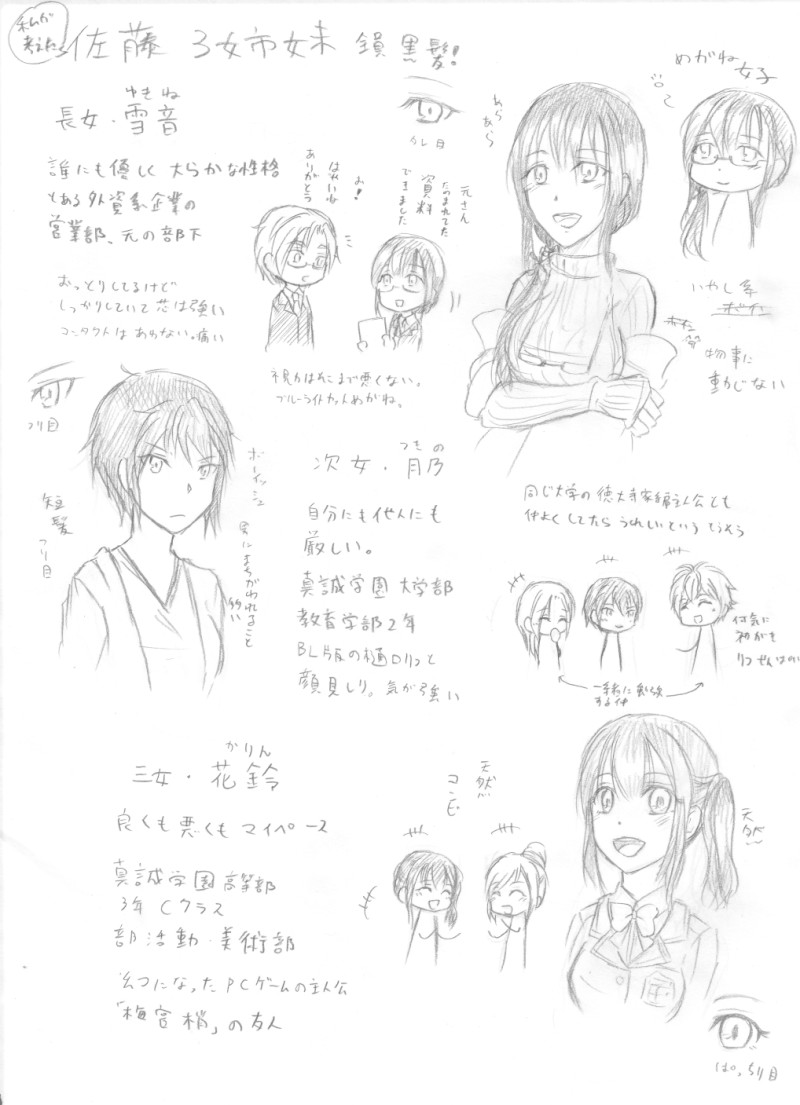 私が
考えた
佐藤 3女市女末 鎖黒髪!
ゆきね
長女・雪音
タレ目
あらあら
めがね女子
誰にも優しく大らかな性格
とある外資系企業の
営業部、元の部下
おっとりしてるけど
しっかりしていて芯は強い
コンタクトはあわない。痛い
ありがとう
お!
元さん
たのまれてた
資料
できました
視力はそこまで悪くない。
ブルーライトカットめがね。
いやし系
物事に
動じない
ツリ目
短髪
ツリ目
ボーイッシュ
男にまちがわれること
多い
つきの
次女・月乃
自分にも他人にも
厳しい。
真誠学園 大学部
教育学部2年
BL版の樋口リコと
顔見しり。気が強い
同じ大学の徳大寺家編主人公とも
仲よくしてたらうれしいという
何気に
初がき
一緒に勉強
する仲
かりん
三女・花鈴
良くも悪くもマイペース
真誠学園高等部
3年Cクラス
部活動・美術部
幻になったPCゲームの主人公
「梅宮梢」の友人
天然
コンビ
天然
ぱっちり目